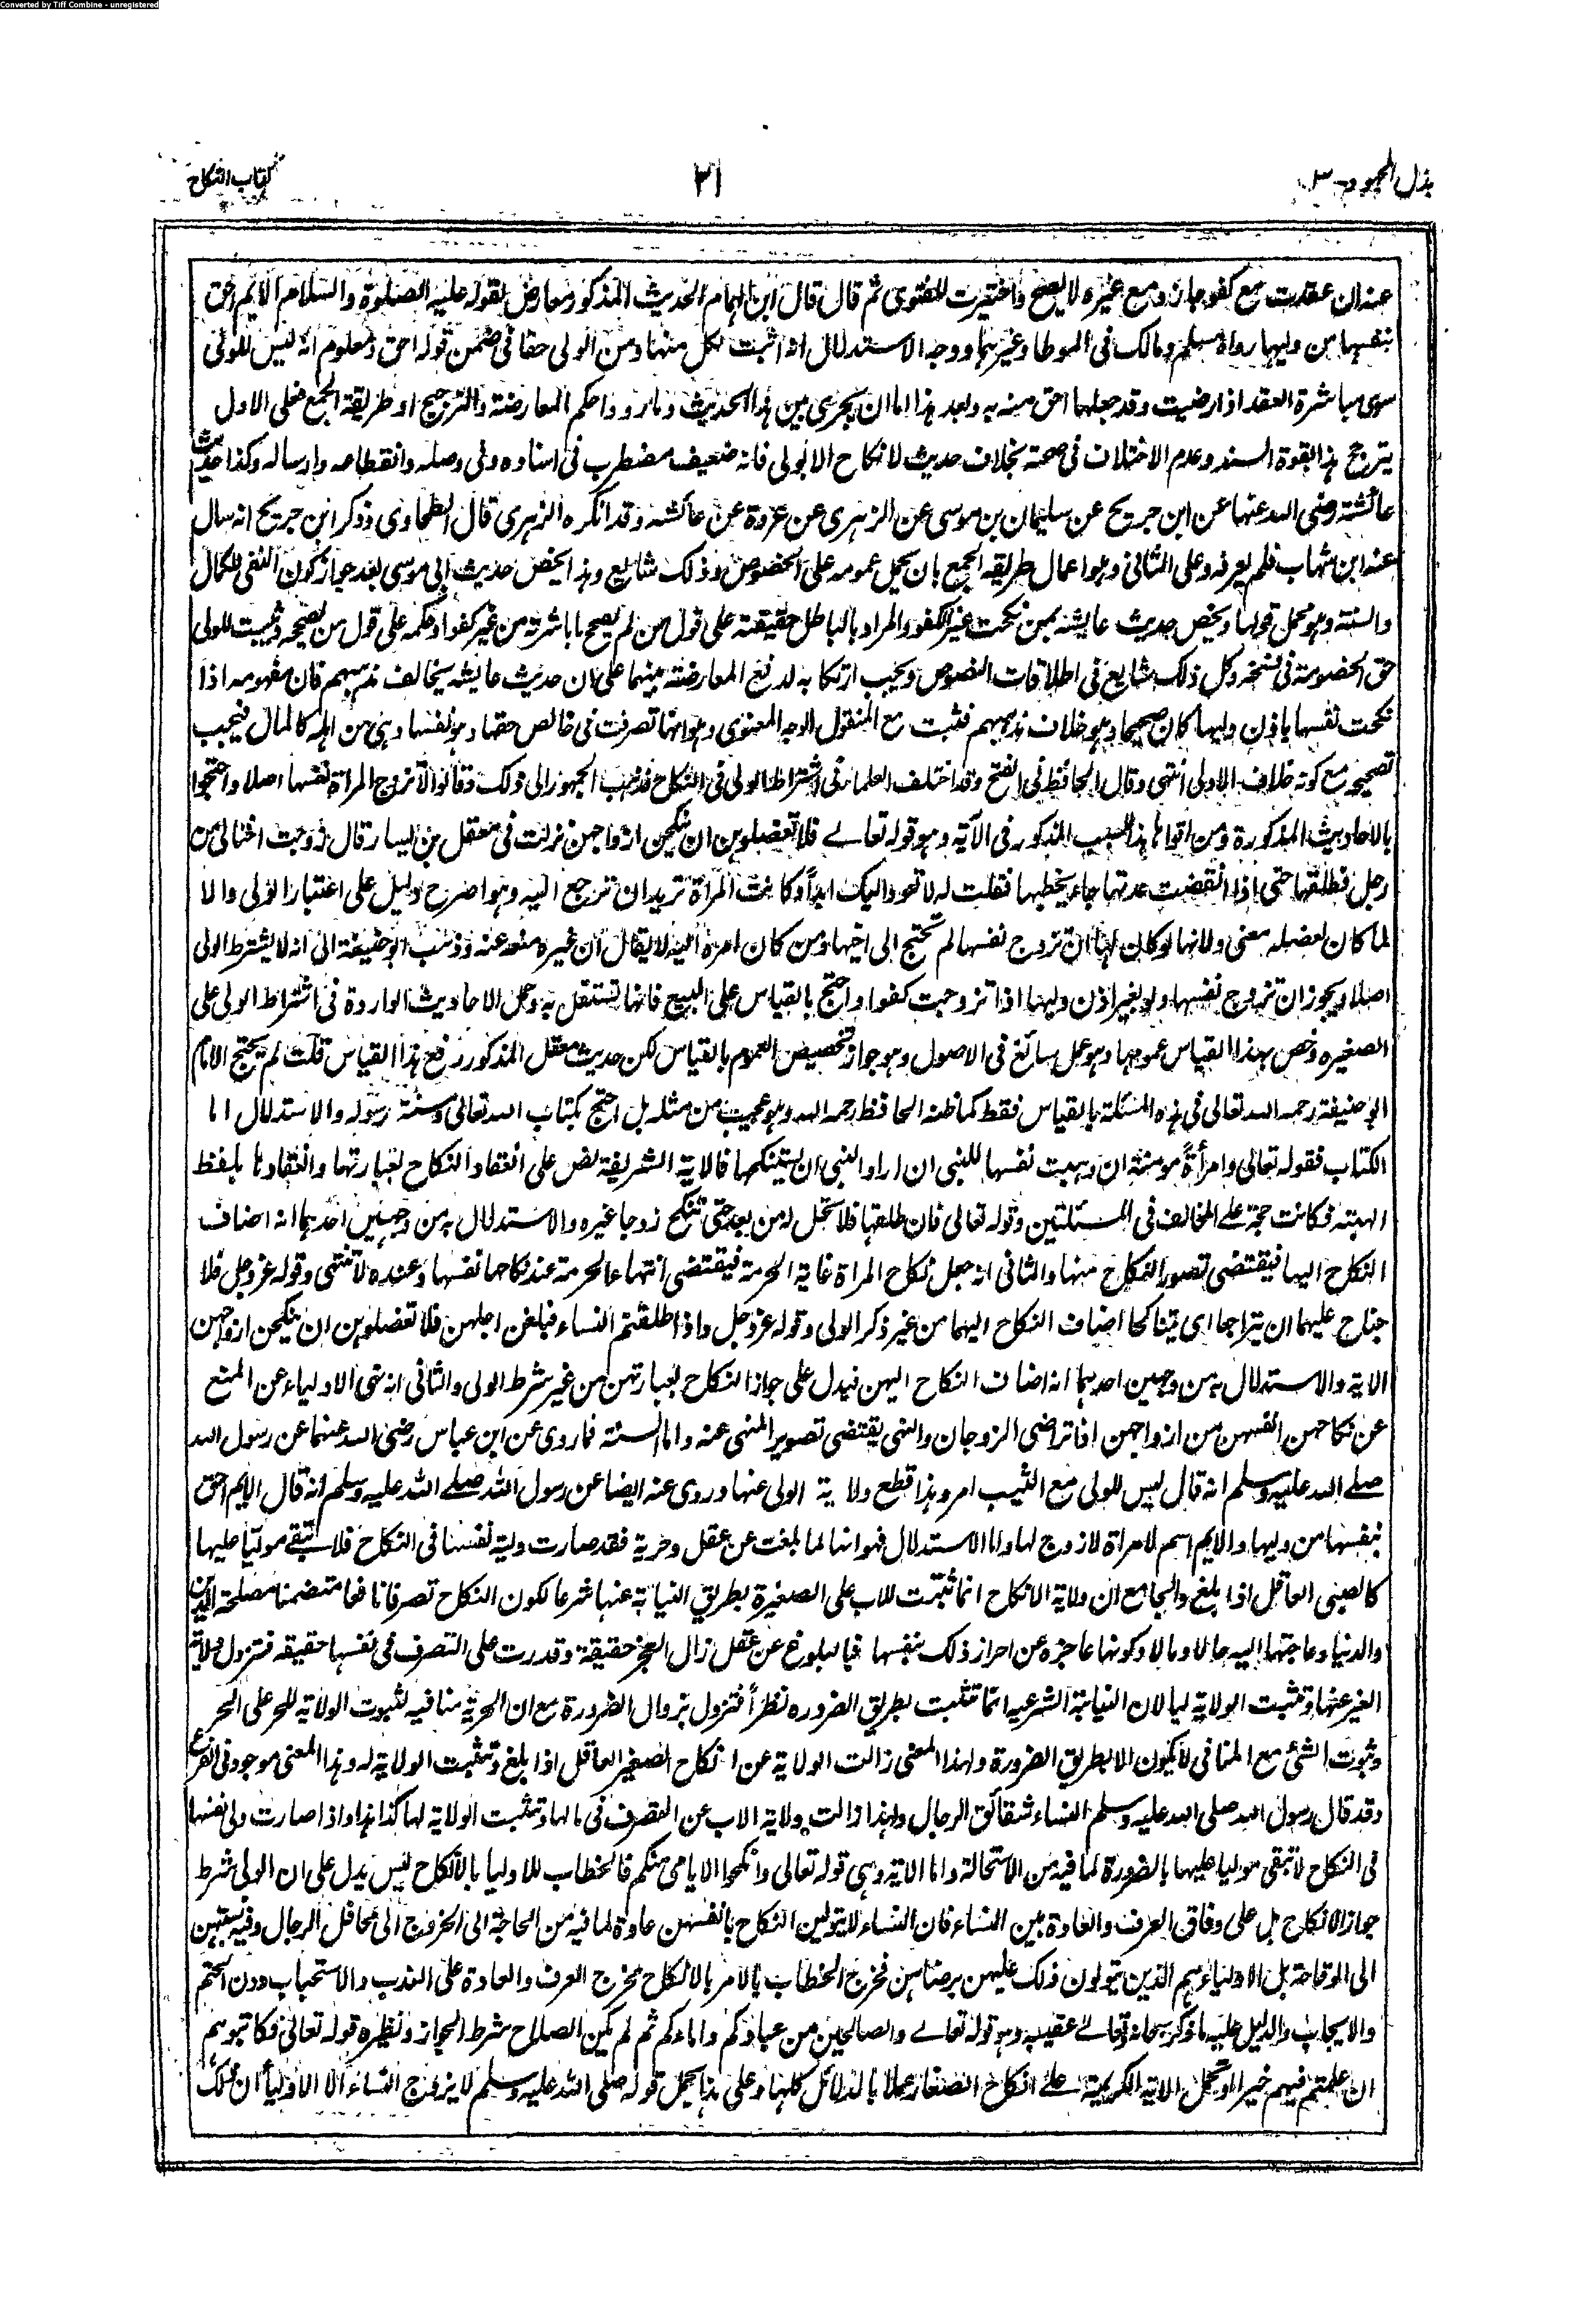 Converted by Tiff Combine - unregistered
بذل المجہود-٣
٢١
کتاب النکاح
عنہ ان عقدت مع کفو جاز ومع غیرہ لا یصح واختیرت للفتوی ثم قال قال ابن الہمام الحدیث المذکور معارض لقولہ علیہ الصلوۃ والسلام الایم احق
بنفسہا من ولیہا رواہ مسلم ومالک فی الموطا وغیرہما ووجہ الاستدلال انہ اثبت لکل منہا ومن الولی حقا فی ضمن قولہ احق ومعلوم انہ لیس للولی
سوی مباشرۃ العقد اذا رضیت وقد جعلہا احق منہ بہ وبعد ہذا اما ان یجری بین ہذا الحدیث وما رووا حکم المعارضۃ والترجیح او طریقۃ الجمع فعلی الاول
یترجح ہذا بقوۃ السند وعدم الاختلاف فی صحتہ بخلاف حدیث لا نکاح الا بولی فانہ ضعیف مضطرب فی اسنادہ وفی وصلہ وانقطاعہ وارسالہ وکذا حدیث
عائشۃ رضی اللہ عنہا عن ابن جریج عن سلیمان بن موسی عن الزہری عن عروۃ عن عائشہ وقد انکرہ الزہری قال الطحاوی وذکر ابن جریج انہ سال
عنہ ابن شہاب فلم یعرفہ وعلی الثانی وہو اعمال طریقہ الجمع بان یحمل عمومہ علی الخصوص وذلک شایع وہذا یخص حدیث ابی موسی بعد جواز کون النفی للکمال
والسنۃ وہو محمل قولہا ویخص حدیث عایشہ بمن نکحت غیر الکفو والمراد بالباطل حقیقتہ علی قول من لم یصح ما باشرتہ من غیر کفو او حکمہ علی قول من یصححہ ویثبت للولی
حق الخصومۃ فی فسخہ وکل ذلک شایع فی اطلاقات النصوص ویجب ارتکابہ لدفع المعارضۃ بینہما علی ان حدیث عایشہ یخالف مذہبہم فان مفہومہ اذا
نکحت نفسہا باذن ولیہا کان صحیحا وہو خلاف مذہبہم فثبت مع المنقول الوجہ المعنوی وہو انہا تصرفت فی خالص حقہا وہو نفسہا وہی من اہلہ کالمال فیجب
تصحیحہ مع کونہ خلاف الاولی انتہی وقال الحافظ فی الفتح وقد اختلف العلماء فی اشتراط الولی فی النکاح فذہب الجمہور الی ذلک وقالوا لا تزوج المراۃ نفسہا اصلا واحتجوا
بالاحادیث المذکورۃ ومن اقواہا ہذا السبب المذکور فی الآیۃ وہو قولہ تعالے فلا تعضلوہن ان ینکحن ازواجہن نزلت فی معقل بن یسار قال زوجت اختالی من
رجل فطلقہا حتی اذا انقضت عدتہا جاء یخطبہا فقلت لہ لا تعود الیک ابداً وکانت المرأۃ ترید ان ترجع الیہ وہو اصرح دلیل علی اعتبار الولی والا
لما کان لعضلہ معنی ولانہا لو کان لہا ان تزوج نفسہا لم تحتج الی اخیہا ومن کان امرہ الیہ لا یقال ان غیرہ منعہ عنہ وذہب ابو حنیفۃ الی انہ لا یشترط الولی
اصلا ویجوز ان تزوج نفسہا ولو بغیر اذن ولیہا اذا تزوجت کفوا واحتج بالقیاس علی البیع فانہا تستقل بہ وحمل الاحادیث الواردۃ فی اشتراط الولی علی
الصغیرہ وخص بہذا القیاس عمومہا وہو عمل سائغ فی الاصول وہو جواز تخصیص العموم بالقیاس لکن حدیث معقل المذکور رفع ہذا القیاس قلت لم یحتج الامام
ابو حنیفۃ رحمہ اللہ تعالی فی ہذہ المسئلۃ بالقیاس فقط کما ظنہ الحافظ رحمہ اللہ وہو عجیب من مثلہ بل احتج بکتاب اللہ تعالی وسنۃ رسولہ والاستدلال اما
الکتاب فقولہ تعالی وامرأۃً مومنۃ ان وہبت نفسہا للنبی ان اراد النبی ان یستنکحہا فالایۃ الشریفۃ نص علی انعقاد النکاح بعبارتہا وانعقادہا بلفظ
الہبۃ فکانت حجۃ علے المخالف فی المسئلتین وقولہ تعالی فان طلقہا فلا تحل لہ من بعد حتی تنکح زوجا غیرہ والاستدلال بہ من وجہین احدہما انہ اضاف
النکاح الیہا فیقتضی تصور النکاح منہا والثانی انہ جعل نکاح المراۃ غایۃ الحرمۃ فیقتضی انتہاء الحرمۃ عند نکاحہا نفسہا وعندہ لا تنتہی وقولہ عزوجل فلا
جناح علیہما ان یتراجعا ای یتناکحا اضاف النکاح الیہما من غیر ذکر الولی وقولہ عزوجل واذا طلقتم النساء فبلغن اجلہن فلا تعضلوہن ان ینکحن ازواجہن
الایۃ والاستدلال بہ من وجہین احدہما انہ اضاف النکاح الیہن فیدل علی جواز النکاح بعبارتہن من غیر شرط الولی والثانی انہ نہی الاولیاء عن المنع
عن نکاحہن انفسہن من ازواجہن اذا تراضی الزوجان والنہی یقتضی تصویر المنہی عنہ واما السنۃ فما روی عن ابن عباس رضی اللہ عنہما عن رسول اللہ
صلے اللہ علیہ وسلم انہ قال لیس للولی مع الثیب امر وہذا قطع ولایۃ الولی عنہا وروی عنہ ایضا عن رسول اللہ صلے اللہ علیہ وسلم انہ قال الایم احق
بنفسہا من ولیہا والایم اسم لامراۃ لا زوج لہا واما الاستدلال فہو انہا لما بلغت عن عقل وحریۃ فقد صارت ولیۃ نفسہا فی النکاح فلا تبقے مولیا علیہا
کالصبی العاقل اذا بلغ والجامع ان ولایۃ الانکاح انما ثبتت للاب علی الصغیرۃ بطریق النیابۃ عنہا شرعا لکون النکاح تصرفا نافعا متضمنا مصلحۃ الدین
والدنیا وحاجتہا الیہ حالا ومالا وکونہا عاجزہ عن احراز ذلک بنفسہا فبالبلوغ عن عقل زال العجز حقیقۃ وقدرت علی التصرف فی نفسہا حقیقۃ فتزول ولایۃ
الغیر عنہا وتثبت الولایۃ لہا لان النیابۃ الشرعیہ انما تثبت بطریق الضرورہ نظراً فتزول بزوال الضرورۃ مع ان الحریۃ منافیہ لثبوت الولایۃ للحر علی الحر
وثبوت الشئ مع المنافی لا یکون الا بطریق الضرورۃ ولہذا المعنی زالت الولایۃ عن انکاح الصغیر العاقل اذا بلغ وتثبت الولایۃ لہ وہذا المعنی موجود فی الفرع
وقد قال رسول اللہ صلی اللہ علیہ وسلم النساء شقائق الرجال ولہذا زالت ولایۃ الاب عن التصرف فی مالہا وتثبت الولایۃ لہا کذا ہذا واذا صارت ولی نفسہا
فی النکاح لا تبقی مولیا علیہا بالضرورۃ لما فیہ من الاستحالۃ واما الایۃ وہی قولہ تعالی وانکحوا الایامی منکم فالخطاب للاولیا بالانکاح لیس یدل علی ان الولی شرط
جواز الانکاح بل علی وفاق العرف والعادۃ بین النساء فان النساء لا یتولین النکاح بانفسہن عادۃ لما فیہ من الحاجۃ الی الخروج الی محافل الرجال وفیہ نسبتہن
الی الوقاحۃ بل الاولیاء ہم الذین یتولون ذلک علیہن برضاہن فخرج الخطاب بالامر بالانکاح مخرج العرف والعادۃ علی الندب والاستحباب دون الحتم
والایجاب والدلیل علیہ ما ذکر سبحانہ وتعالے عقیبہ وہو قولہ تعالے والصالحین من عبادکم واماءکم ثم لم یکن الصلاح شرط الجواز ونظیرہ قولہ تعالی فکاتبوہم
ان علمتم فیہم خیرا او تحمل الایۃ الکریمۃ علے انکاح الصغار عملا بالدلائل کلہا وعلی ہذا یحمل قولہ صلی اللہ علیہ وسلم لا یزوج النساء الا الاولیاء ان ذلک